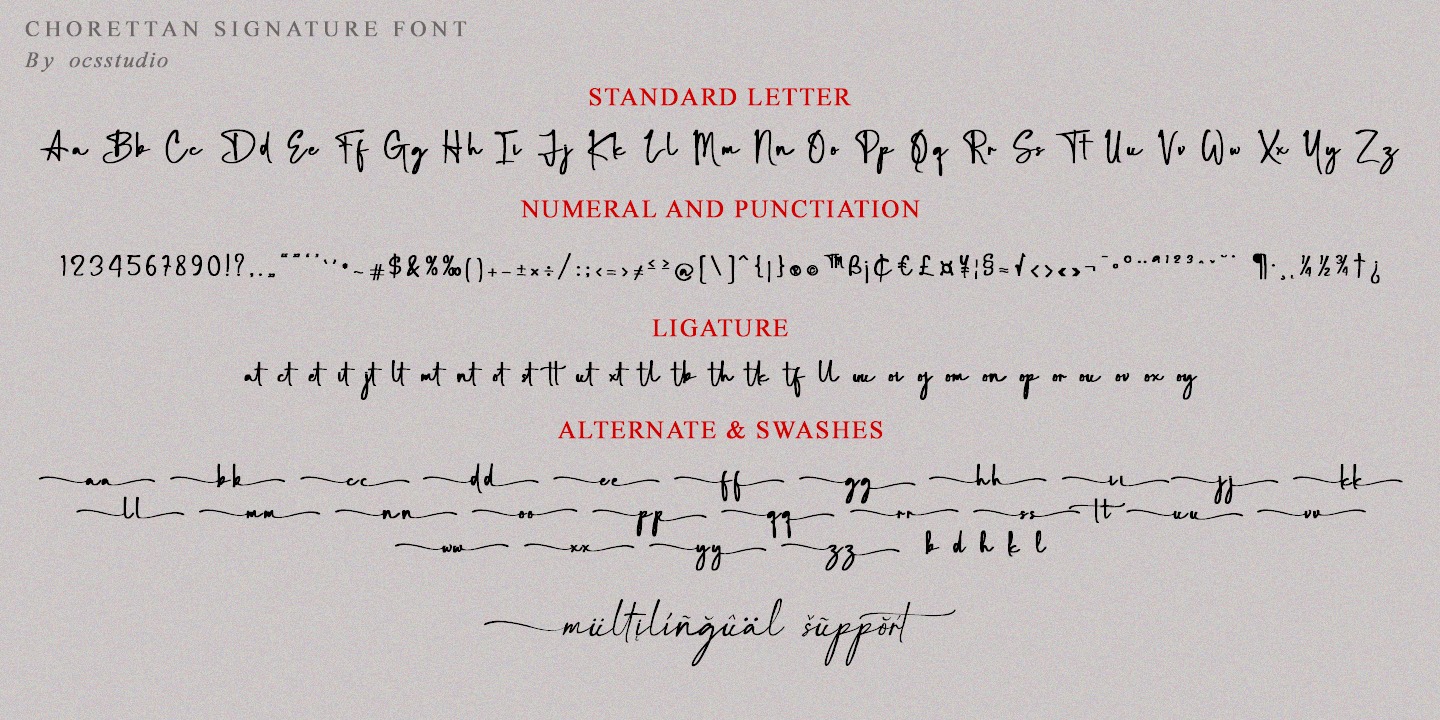 CHORETTAN SIGNATURE FONT
By ocsstudio
STANDARD LETTER
Aa Bb Cc Dd Ee Ff Gg Hh Ii Jj Kk Ll Mm Nn Oo Pp Qq Rr Ss Tt Uu Vv Ww Xx Yy Zz
NUMERAL AND PUNCTIATION
1234567890!?…„“”‘’‚•~#$&%‰()+−±×÷/:;<=>≠≤≥@[\]^{|}®©™ß¡₵€£¤¥¦§≈√‹›«»¬¯°ªº¹²³ ¶·¸¼½¾†¿
LIGATURE
at ct et it jt lt mt nt ot st tt ut xt tl tb th tk tf ll uu oi oj om on op or ou ov ox oy
ALTERNATE & SWASHES
aa bb cc dd ee ff gg hh ii jj kk
ll mm nn oo pp qq rr ss lt uu vv
ww xx yy zz b d h k l
mültilíñğûäl šũppŏŕt